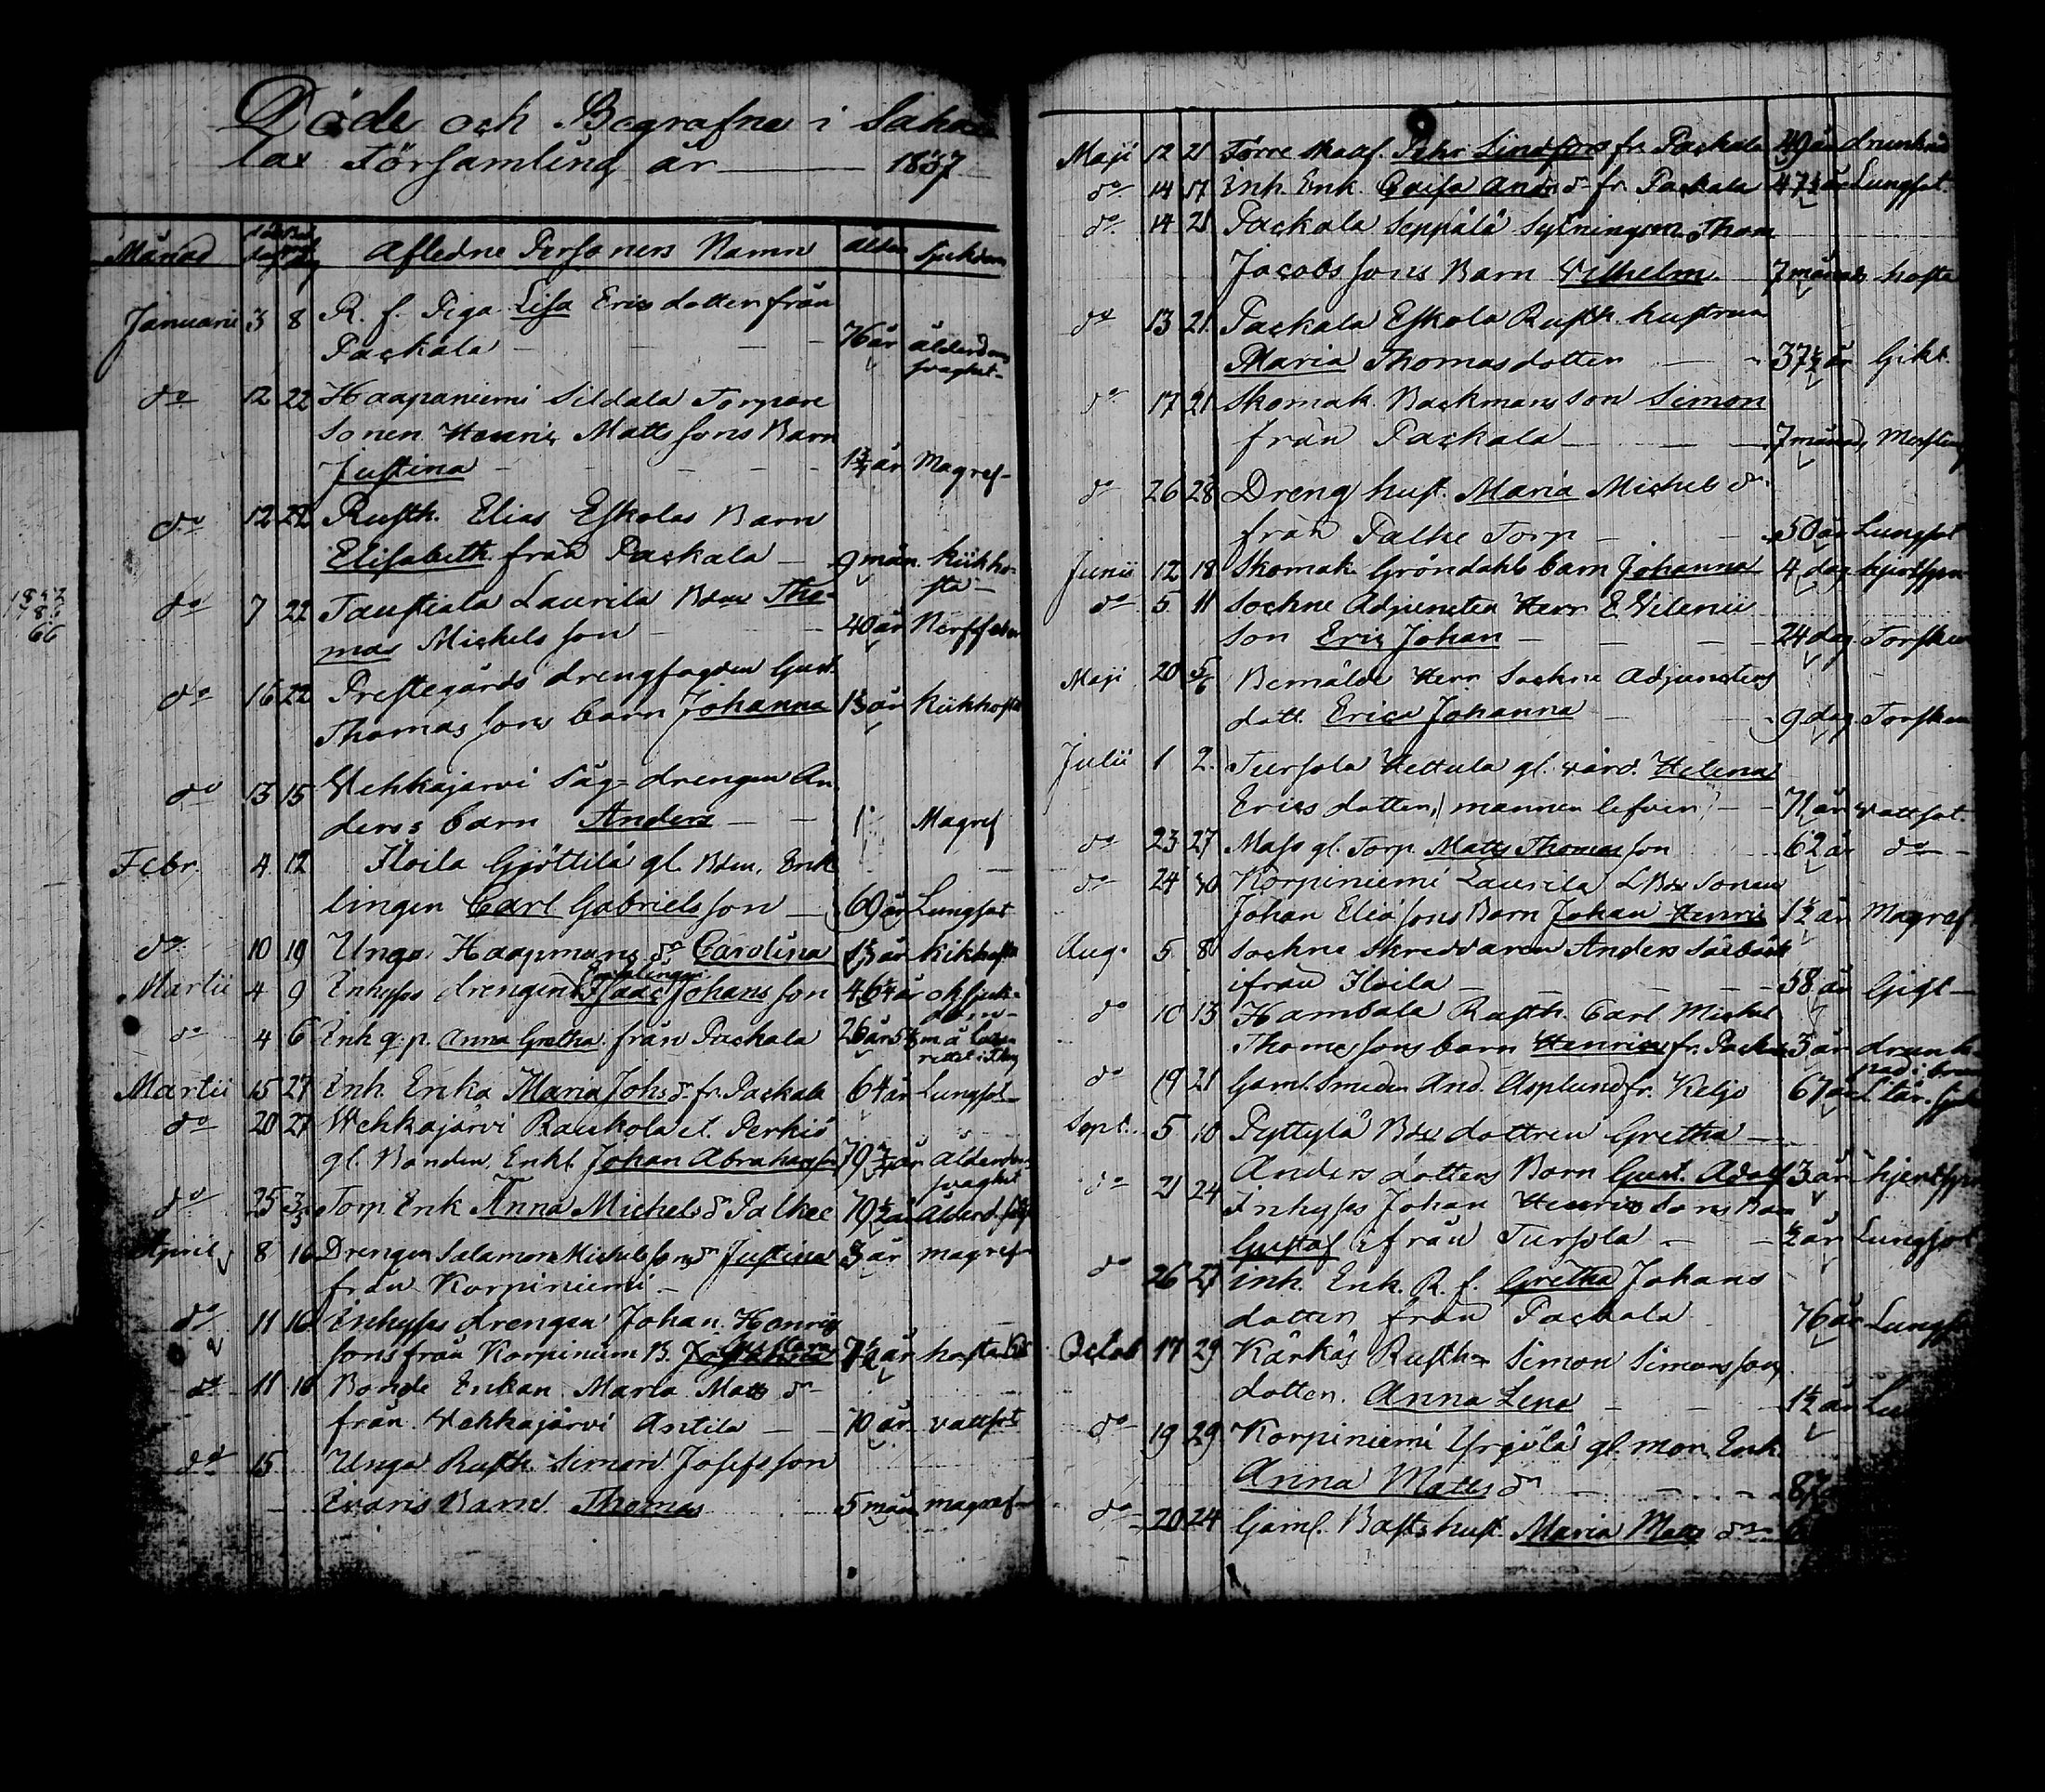 Döde och Begrafne i Saha
lax Församling år 1837
Månad Afledne Personers Namn ålder Sjukdom
Januarii 3 8 R. f. Piga Lisa Erics dotter från
Packala 76 år ålderdoms
svaghet
do 12 22 Haapaniemi Sildala Torpare
Sonen Henric Matts sons Barn
Justina år Magref
do 12 22 Rusth. Elias Eskolas Barn
Elisabeth från Packala 9 mån. kikho-
sta
do 7 22 Taustiala Laurila Bden Tho-
mas Michels son 40 år Nerffeber
do 16 22 Prestegårds drengfogden Gust.
Thomas sons barn Johanna år kikhosta
do 13 15 Wehkajärvi Såg-drengen An
derss barn Anders 1 Magref
Febr. 4 12 Iloila Gjöttilä gl. Bden. Enk
lingen Carl Gabriels son 69 år Lungsot
do 10 19 Unga Haapmans dr Carolina år kikhosta
Martii 4 9 Enklingen
Inhyses drengen Isaac Johans son 46 1/4 år ok. sjuk-
dom
do 4 6 Inh. q. p. Anna Gretha från Packala 26 år
Martii 15 27 Inh. Enka Maria Johs dr fr. Packala 64 år Lungsot
do 20 27 Wehkajärvi Rauskola et Perkiö
gl. Bonden, Enkl. Johan Abrahamsson 79 år ålderdoms
svaghet
do 25 Torp Enk Anna Michels dr Palkee 79 1/2 år ålderd.
April 8 16 Drengen Salamon Michels sons dr Justina år magref
från Korpiniemi
do 11 16 Inhyses drengen Johan Henrics
Gustava
sons från Korpiniem B. Johanna år hosta
do 11 16 Bonde Enkan Maria Matts dr
från Wehkajärvi Antila 70 år vattsot
do 15 Unga Rusth. Simon Josefs son
Evaris Barn Thomas 5 mån magref
Maji 12 21 Förre skaf. Pehr Lindfors fr. Packala 49 år drunknad
do 14 Inh. Enk. Caisa Anders dr fr. Packala 47 1/2 år Lungsot
do 14 21 Packala Seppälä Sytningsm. Thom
Jacobs sons Barn Wilhelm 7 månad hosta
do 13 21 Packala Eskola Rusth. hustrun
Maria Thomas dotter 37 1/2 år Gikt
do 17 21 Skomak. Backmans son Simon
från Packala 7 månad, Messling
do 26 28 Dreng hust. Maria Michels dr
från Palke Torp 50 år Lungsot
Junii 12 18 Skomak. Gröndahls barn Johanna 4 dag
do 5 11 Sochne Adjuncten Herr E. Vilenii
son Eric Johan 24 dag Torsken
Maji 20 5/6 Bemälde Herr Sochne Adjunctens
dott. Erica Johanna 9 dag Torsken
Julii 1 2 Tursola Hettula gl. värd. Helena
Erics dotter, mannen lefver 71 år vattsot
do 23 27 Mass gl. Torp. Matts Thomas son 62 år do
do 24 30 Korpiniemi Laurila L. Bde Sonen
Johan Elias sons Barn Johan Henric 1 1/2 år Magref
Aug. 5 8 Sochne Skreddaren Anders
ifrån Iloila 58 år Gigt
do 10 13 Hambala Rusth. Carl Michel
Thomas sons barn Henric fr. Packala 3 år drunk-
nad i brunn
do 19 21 Gaml. Smeden And. Asplund fr. Keljo 67 år
Sept. 5 10 Pyttylä Bde dottren Gretha
Anders dotters Barn Gust. Adolf 3 år
do 21 24 Inhyses Johan Henrics sons Barn
Gustaf ifrån Tursola 1/2 år Lungsot
do 26 27 inh. Enk. R. f. Gretha Johans
dotter från Packala 76 år
Octob 17 29 Kärkäs Rusth. Simon Simons sons
dotter Anna Lena 1 1/2 år
do 19 29 Korpiniemi Yrjölä gl. mor, Enk.
Anna Matts dr 87
do 20 24 Gaml. Basts hust. Maria Matts dr